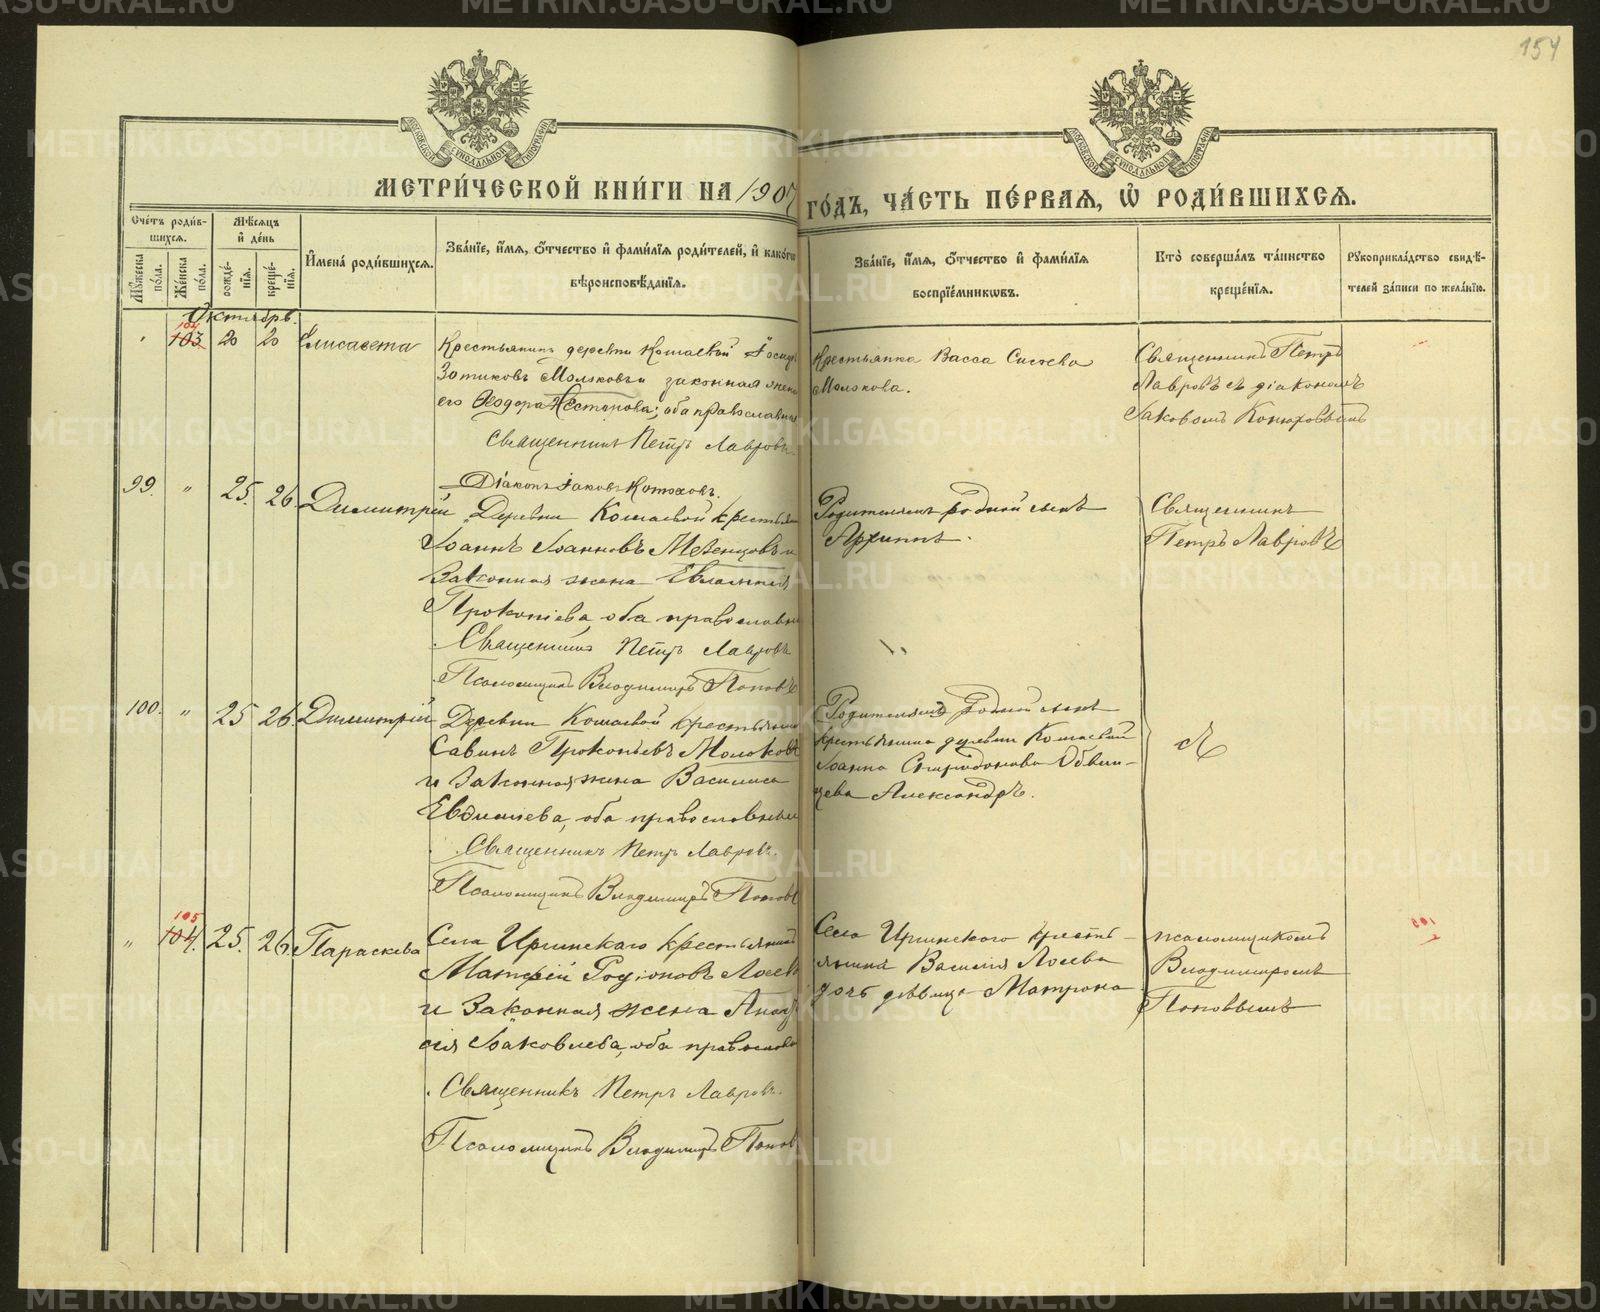 154
МОСКОВСКОЙ СѴНОДАЛЬНОЙ ТИПОГРАФІИ
МОСКОВСКОЙ СѴНОДАЛЬНОЙ ТИПОГРАФІИ
МЕТРИ́ЧЕСКОЙ КНИ́ГИ НА 1907 ГО́ДЪ, ЧА́СТЬ ПЕ́РВАѦ, Ѽ РОДИ́ВШИХСѦ.
Сче́тъ роди́в-
шихсѧ.
Мꙋ́жеска по́ла.
Же́нска по́ла.
Мѣ́сѧцъ
и҆ де́нь
рожде́-
нїѧ.
креще́-
нїѧ.
И҆мена̀ роди́вшихсѧ.
Зва́нїе, и҆́мѧ, ѻ҆́тчество и҆ фами́лїѧ роди́телей, и҆ како́гѡ
вѣроисповѣ́данїѧ.
Зва́нїе, и҆́мѧ, ѻ҆́тчество и҆ фами́лїѧ
воспрїе́мникѡвъ.
Кто̀ соверша́лъ та́инство
креще́нїѧ.
Рꙋкоприкла́дство свидѣ́-
телей за́писи по жела́нїю.
Октябрь.
104
103 20 20 Елисавета
Крестьянинъ деревни Кошаевой
Зотиковъ Молоковъ и законная жена
его Ѳеодора Несторова; оба православные
Священникъ Петръ Лавровъ
Діаконъ Іаковъ
Крестьянка Васса
Молокова.
Священникъ Петръ
Лавровъ съ діакономъ
Іаковомъ
99. " 25. 26. Димитрій
Деревни Кошаевой крестьянинъ
Іоаннъ Іоанновъ Мезенцовъ и
Законная жена Евлампія
Прокопіева, оба православные
Священникъ Петръ Лавровъ
Псаломщикъ Владимиръ Поповъ
Родителямъ родной сынъ
Архиппъ.
Священникъ
Петръ Лавровъ
100. " 25 26. Димитрій
Деревни Кошаевой крестьянинъ
Савинъ Прокопьевъ Молоковъ
и Законная жена Василиса
Евдокиміева, оба православные
Священникъ Петръ Лавровъ.
Псаломщикъ Владимиръ Поповъ
родной сынъ
крестьянина деревни Кошаевой
Іоанна Спиридонова
Александръ.
съ
105
" 104. 25. 26. Параскева
Села Иргинскаго крестьянинъ
Матѳей Родіоновъ Лосевъ
и Законная жена
Іаковлева, оба православные
Священникъ Петръ Лавровъ.
Псаломщикъ Владимиръ Поповъ
Села Иргинскаго кресть-
янина Василія Лосева
дочь дѣвица Матрона
псаломщикомъ
Владимиромъ
Поповымъ
METRIKI.GASO-URAL.RU